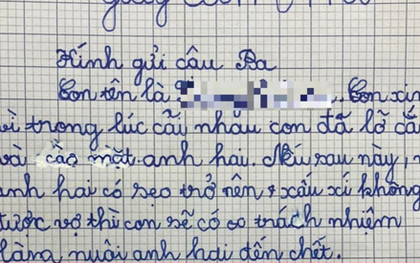 Kính gửi câu Ba
Con tên là Con xin
vì trong lúc cãi nhau con đã lỡ cắ
và cào mặt anh hai. Nếu sau này,
anh hai có sẹo trở nên xấu xí không
được vợ thì con sẽ có trách nhiệm
làm nuôi anh hai đến chết.